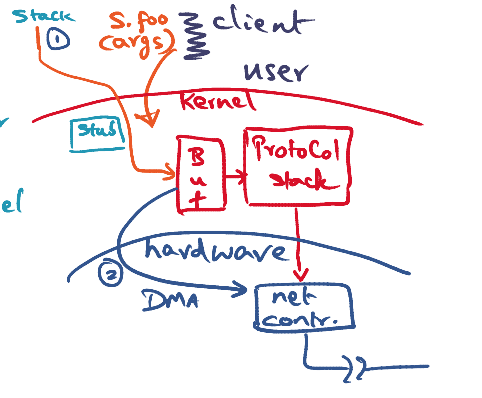 Stack
①
S.foo
(args)
client
user
Kernel
Stub
B
u
f
Protocol
stack
hardware
②
DMA
net
contr.
el